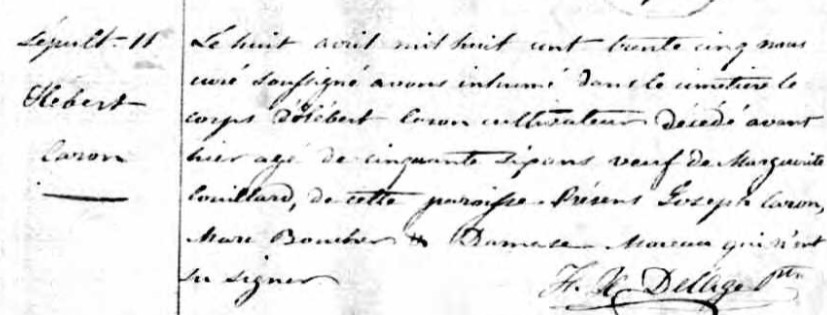 Sépult. 11
Hébert
Caron
Le huit avril mil huit cent trente cinq nous
curé soussigné avons inhumé dans le cimetière le
corps d'hébert Caron cultivateur décédé avant
hier agé de cinquante ans veuf de Marguerite
Couillard, de cette paroisse Présens Joseph Caron,
Marc Boucher & Damase Moreau qui n'ont
su signer
F. X. Delage ptre